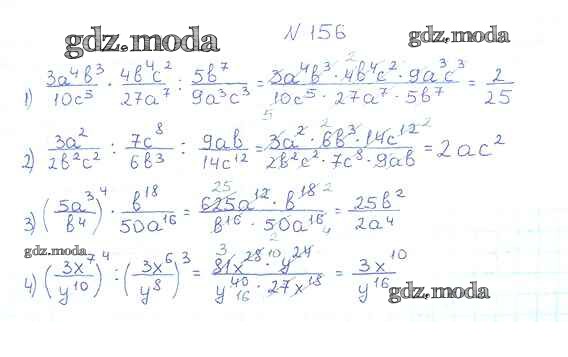 gdz.moda
N 156
gdz.moda
1) 3a⁴b³/10c⁵ · 4b⁴c²/27a⁷ : 5b⁷/9a³c³ = 3a⁴b³ · 4b⁴c² · 9a³c³/10c⁵ · 27a⁷ · 5b⁷ = 2/25
2) 3a²/2b²c² : 7c⁸/6b³ : 9ab/14c¹² = 3a² · 6b³ · 14c¹²/2b²c² · 7c⁸ · 9ab = 2ac²
3) (5a³/b⁴)⁴ · b¹⁸/50a¹⁶ = 625a¹² · b¹⁸/b¹⁶ · 50a¹⁶ = 25b²/2a⁴
gdz.moda
4) (3x⁷/y¹⁰)⁴ : (3x⁶/y⁸)³ = 81x²⁸ · y²⁴/y⁴⁰ · 27x¹⁸ = 3x¹⁰/y¹⁶
gdz.moda